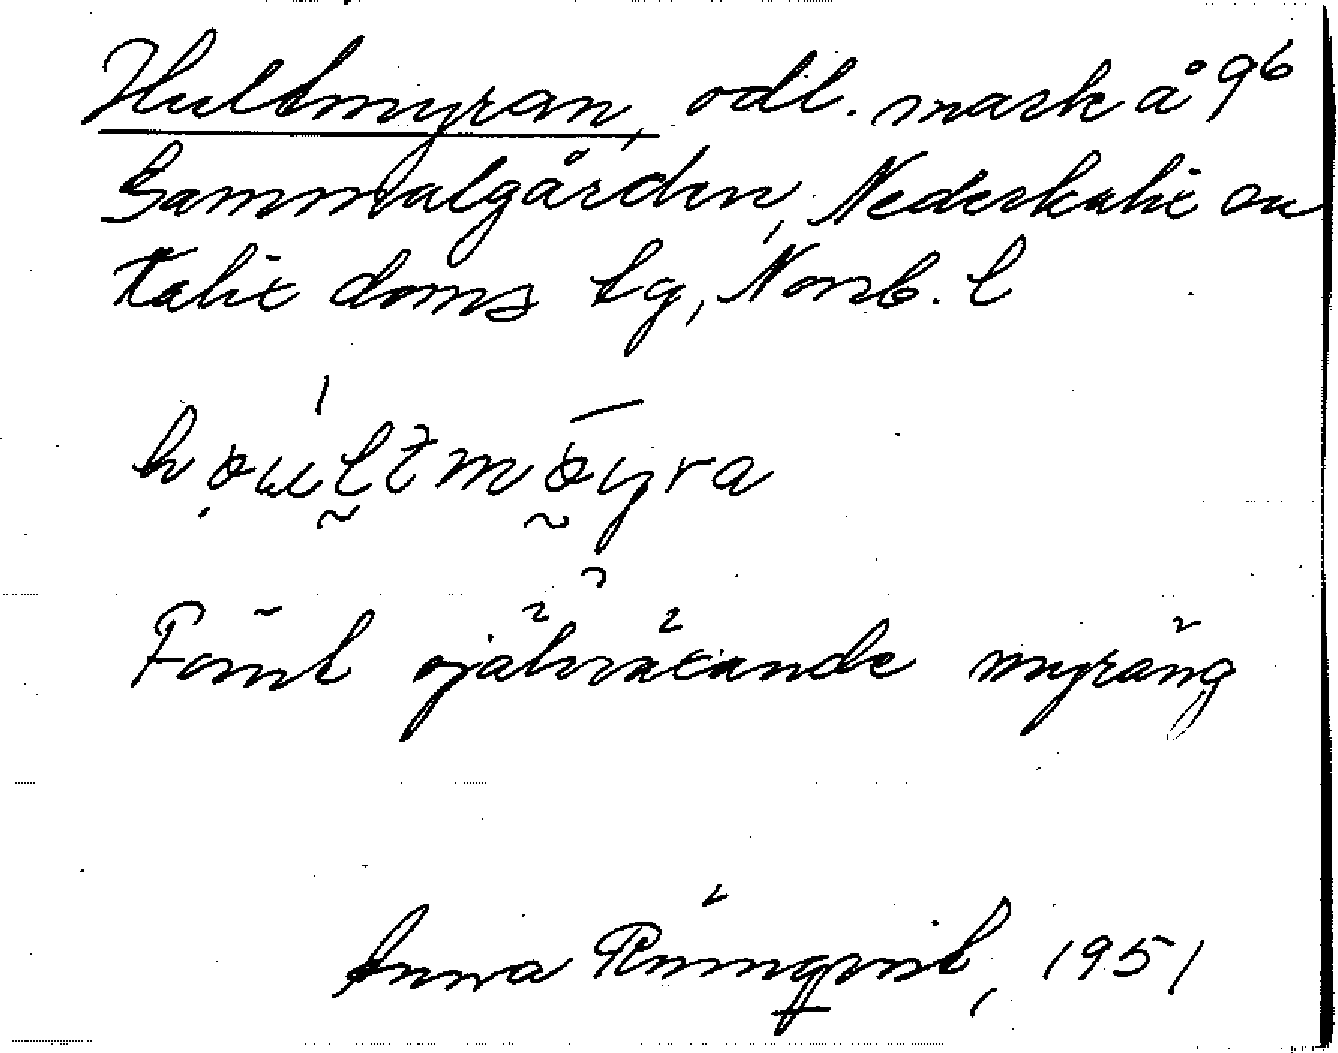 Hultmyran, odl. mark å 9⁶
Gammalgården, Nederkalix sn
Kalix doms lg, Norrb. l
Förut självrätande myräng
Anna Rönnqvist, 1951